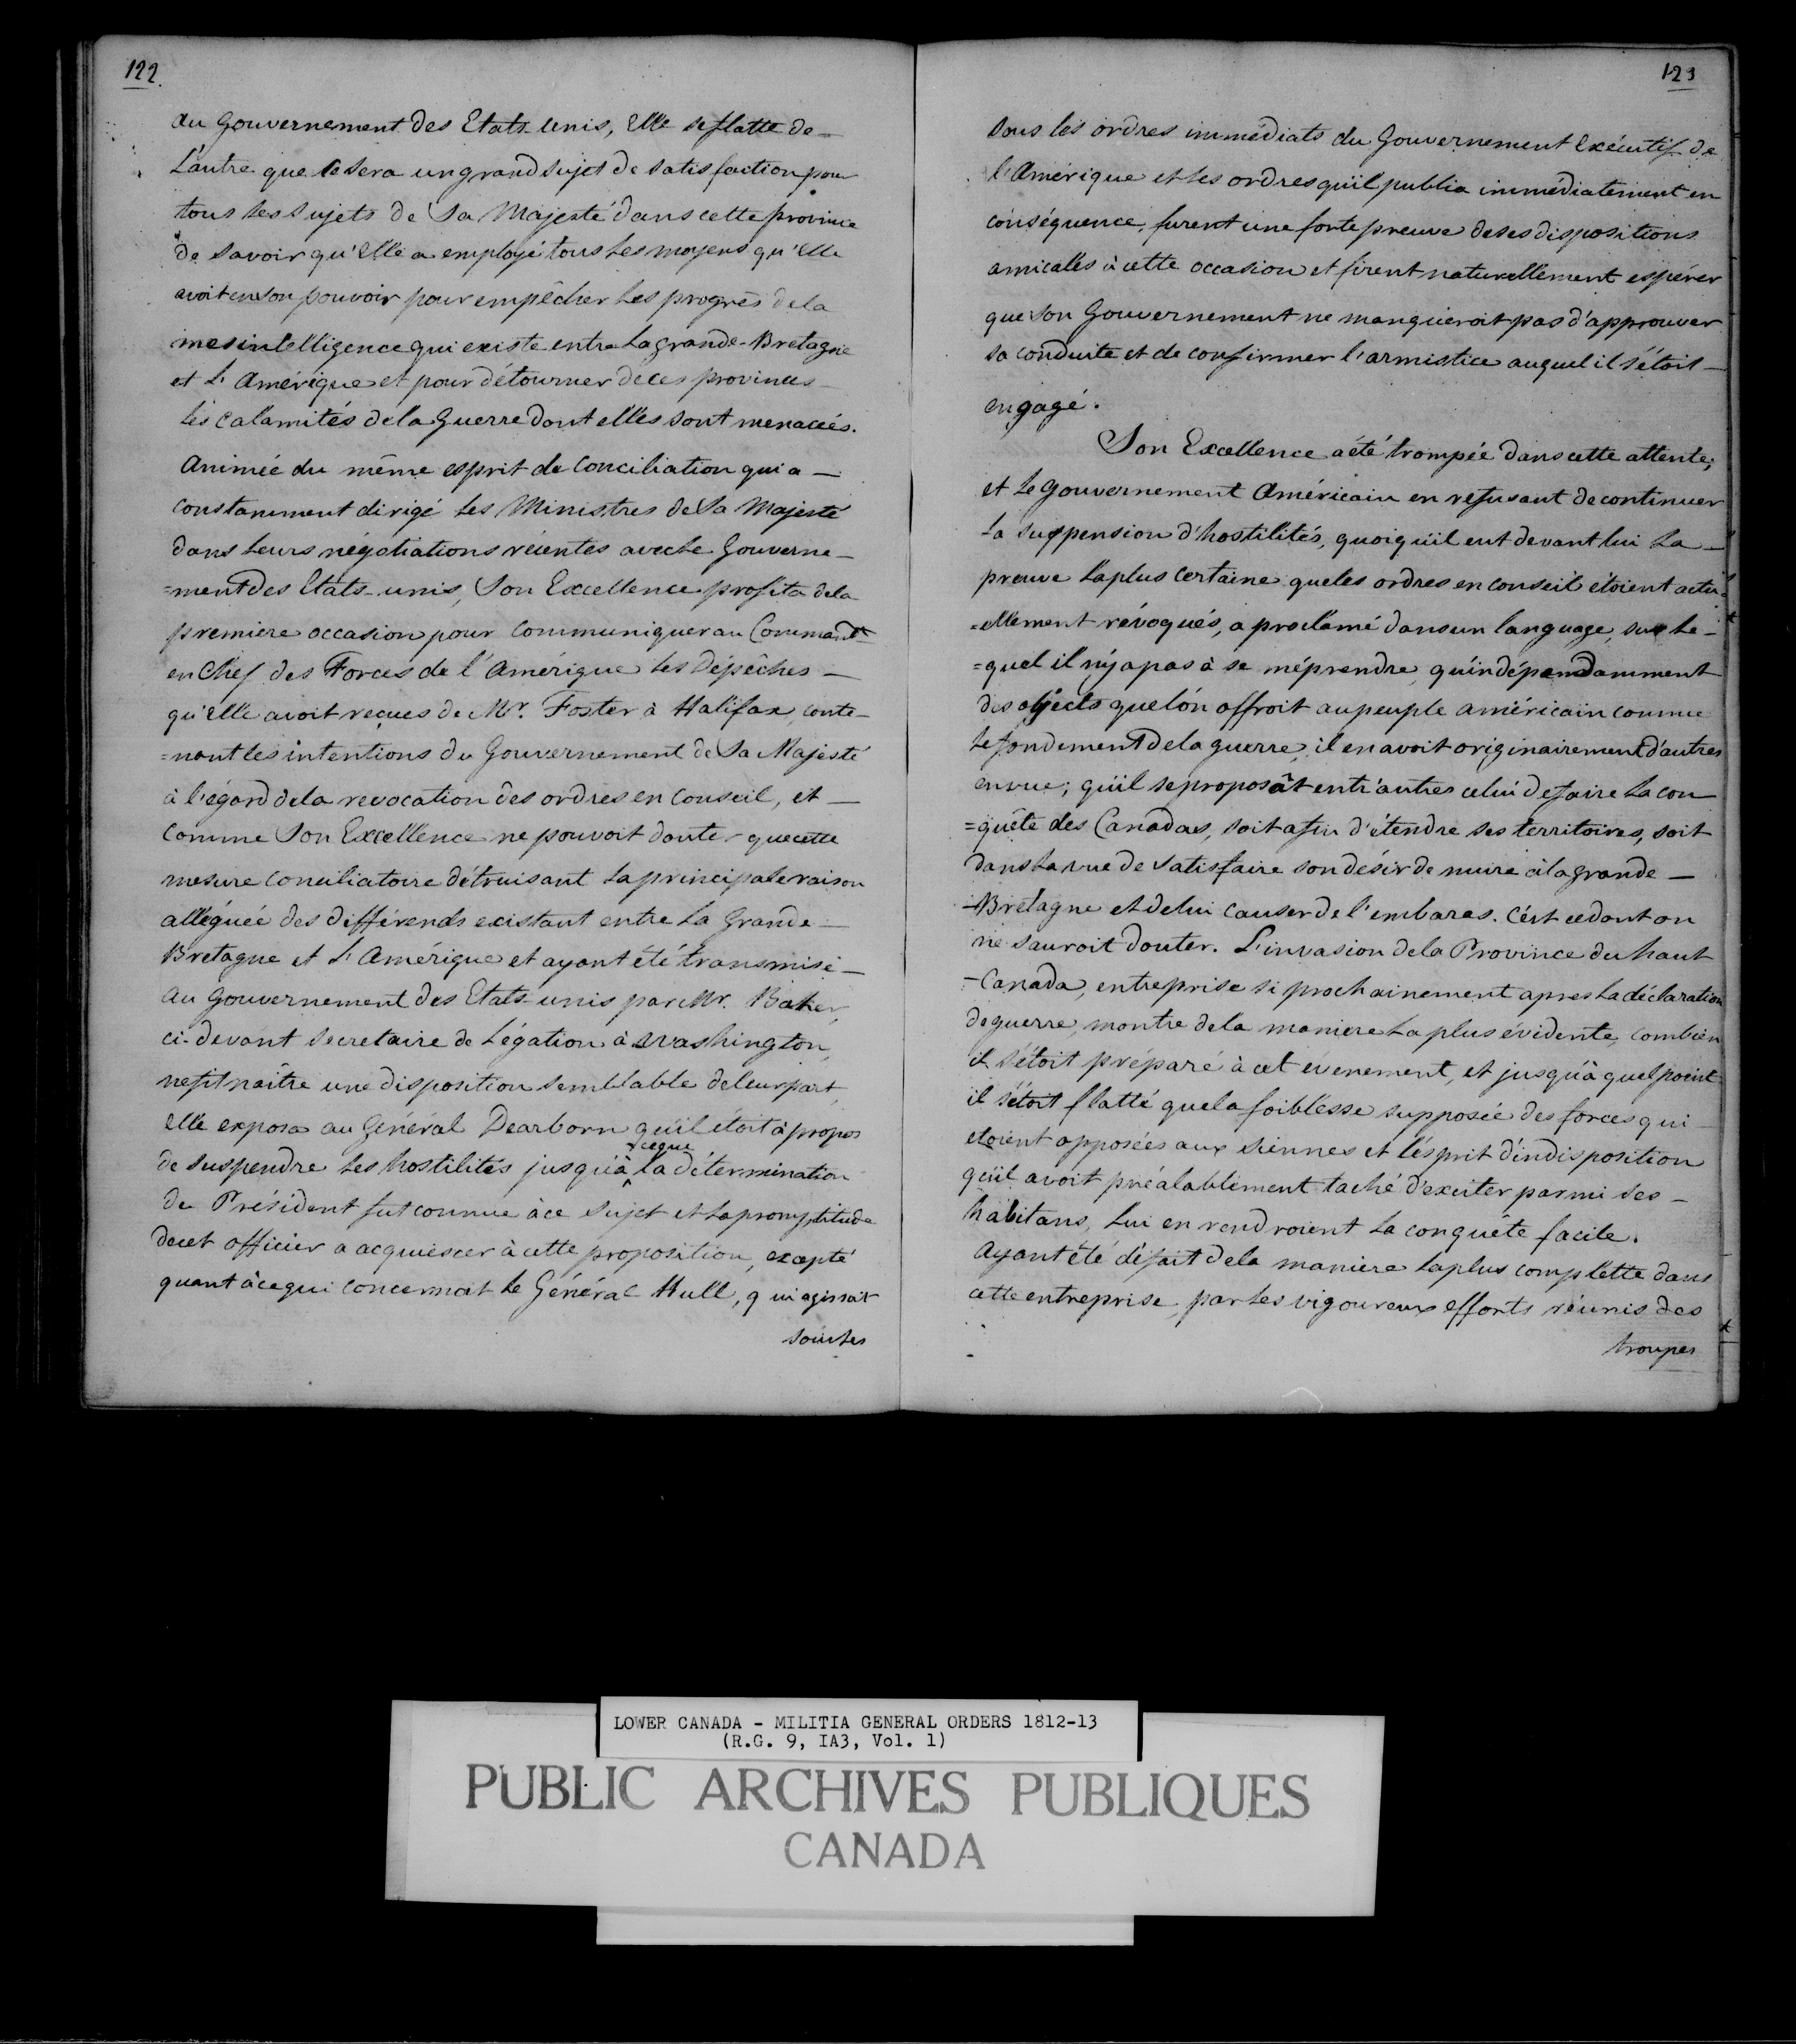 122
du Gouvernement des Etats-unis, Elle se flatte de
L'autre que ce sera un grand sujet de satisfaction pour
tous les sujets de Sa Majesté dans cette province
de savoir qu'Elle a employé tous les moyens qu'Elle
avoit en son pouvoir pour empêcher les progrès de la
mesintelligence qui existe entre la grande-Bretagne
et L'Amérique et pour détourner de ces provinces
les calamités de la Guerre dont elles sont menacées.
Animée du même esprit de conciliation qui a
constamment dirigé les Ministres de Sa Majesté
dans leurs négotiations récentes avec le Gouverne-
=ment des Etats-unis, Son Excellence profita de la
premiere occasion pour communiquer au Commandt
en Chef des Forces de l'Amérique les Dépêches
qu'elle avoit reçues de Mr. Foster à Halifax, conte-
=nant les intentions du Gouvernement de Sa Majesté
à l'égard de la revocation des ordres en conseil, et
comme Son Excellence ne pouvoit douter que cette
mesure conciliatoire détruisant la principale raison
alléguée des différends existant entre la Grande
Bretagne et L'Amérique et ayant été transmise
au Gouvernement des Etats-unis par Mr. Baker,
ci-devant Secretaire de Légation à Washington,
ne fit naître une disposition semblable de leur part,
Elle exposa au Général Dearborn qu'il étoit à propos
de suspendre les hostilités jusqu'à ce que la détermination
du Président fut connue à ce sujet et la promptitude
de cet officier a acquiescer à cette proposition, excepté
quant à ce qui concernoit le Général Hull, qui agissoit
sous les
123
sous les ordres immédiats du Gouvernement Exécutif de
l'Amérique et les ordres qu'il publia immédiatement en
conséquence, furent une forte preuve de ses dispositions
amicales à cette occasion et firent naturellement espérer
que son Gouvernement ne manqueroit pas d'approuver
sa conduite et de confirmer l'armistice auquel il s'étoit
engagé.
Son Excellence a été trompée dans cette attente;
et le gouvernement Américain en refusant de continuer
la suspension d'hostilités, quoiqu'il eut devant lui la
preuve la plus certaine que les ordres en conseil étoient actu-
=ellement révoqués, a proclamé dans un language, sur le-
=quel il n'y a pas à se méprendre, qu'indépendamment
des objects que l'on offroit au peuple américain comme
le fondement de la guerre, il en avoit originairement d'autres
en vue; qu'il se proposât entr'autres celui de faire la con
=quête des Canadas, soit afin d'étendre ses territoires, soit
dans la vue de satisfaire son désir de nuire à la grande
-Bretagne et de lui causer de l'embaras. C'est ce dont on
ne sauroit douter. L'invasion de la Province du haut
-Canada, entreprise si prochainement apres la déclaration
de guerre, montre de la maniere la plus évidente, combien
il s'étoit préparé à cet évenement, et jusqu'à quel point
il s'étoit flatté que la foiblesse supposée des forces qui
etoient opposées aux siennes et l'ésprit d'indisposition
qu'il avoit préalablement taché d'exciter parmi ses
habitans, lui en rendroient la conquête facile.
Ayant été défait de la maniere la plus complette dans
cette entreprise, par les vigoureux efforts réunis des
troupes
LOWER CANADA - MILITIA GENERAL ORDERS 1812-13
(R.G. 9, IA3, Vol. 1)
PUBLIC ARCHIVES PUBLIQUES
CANADA